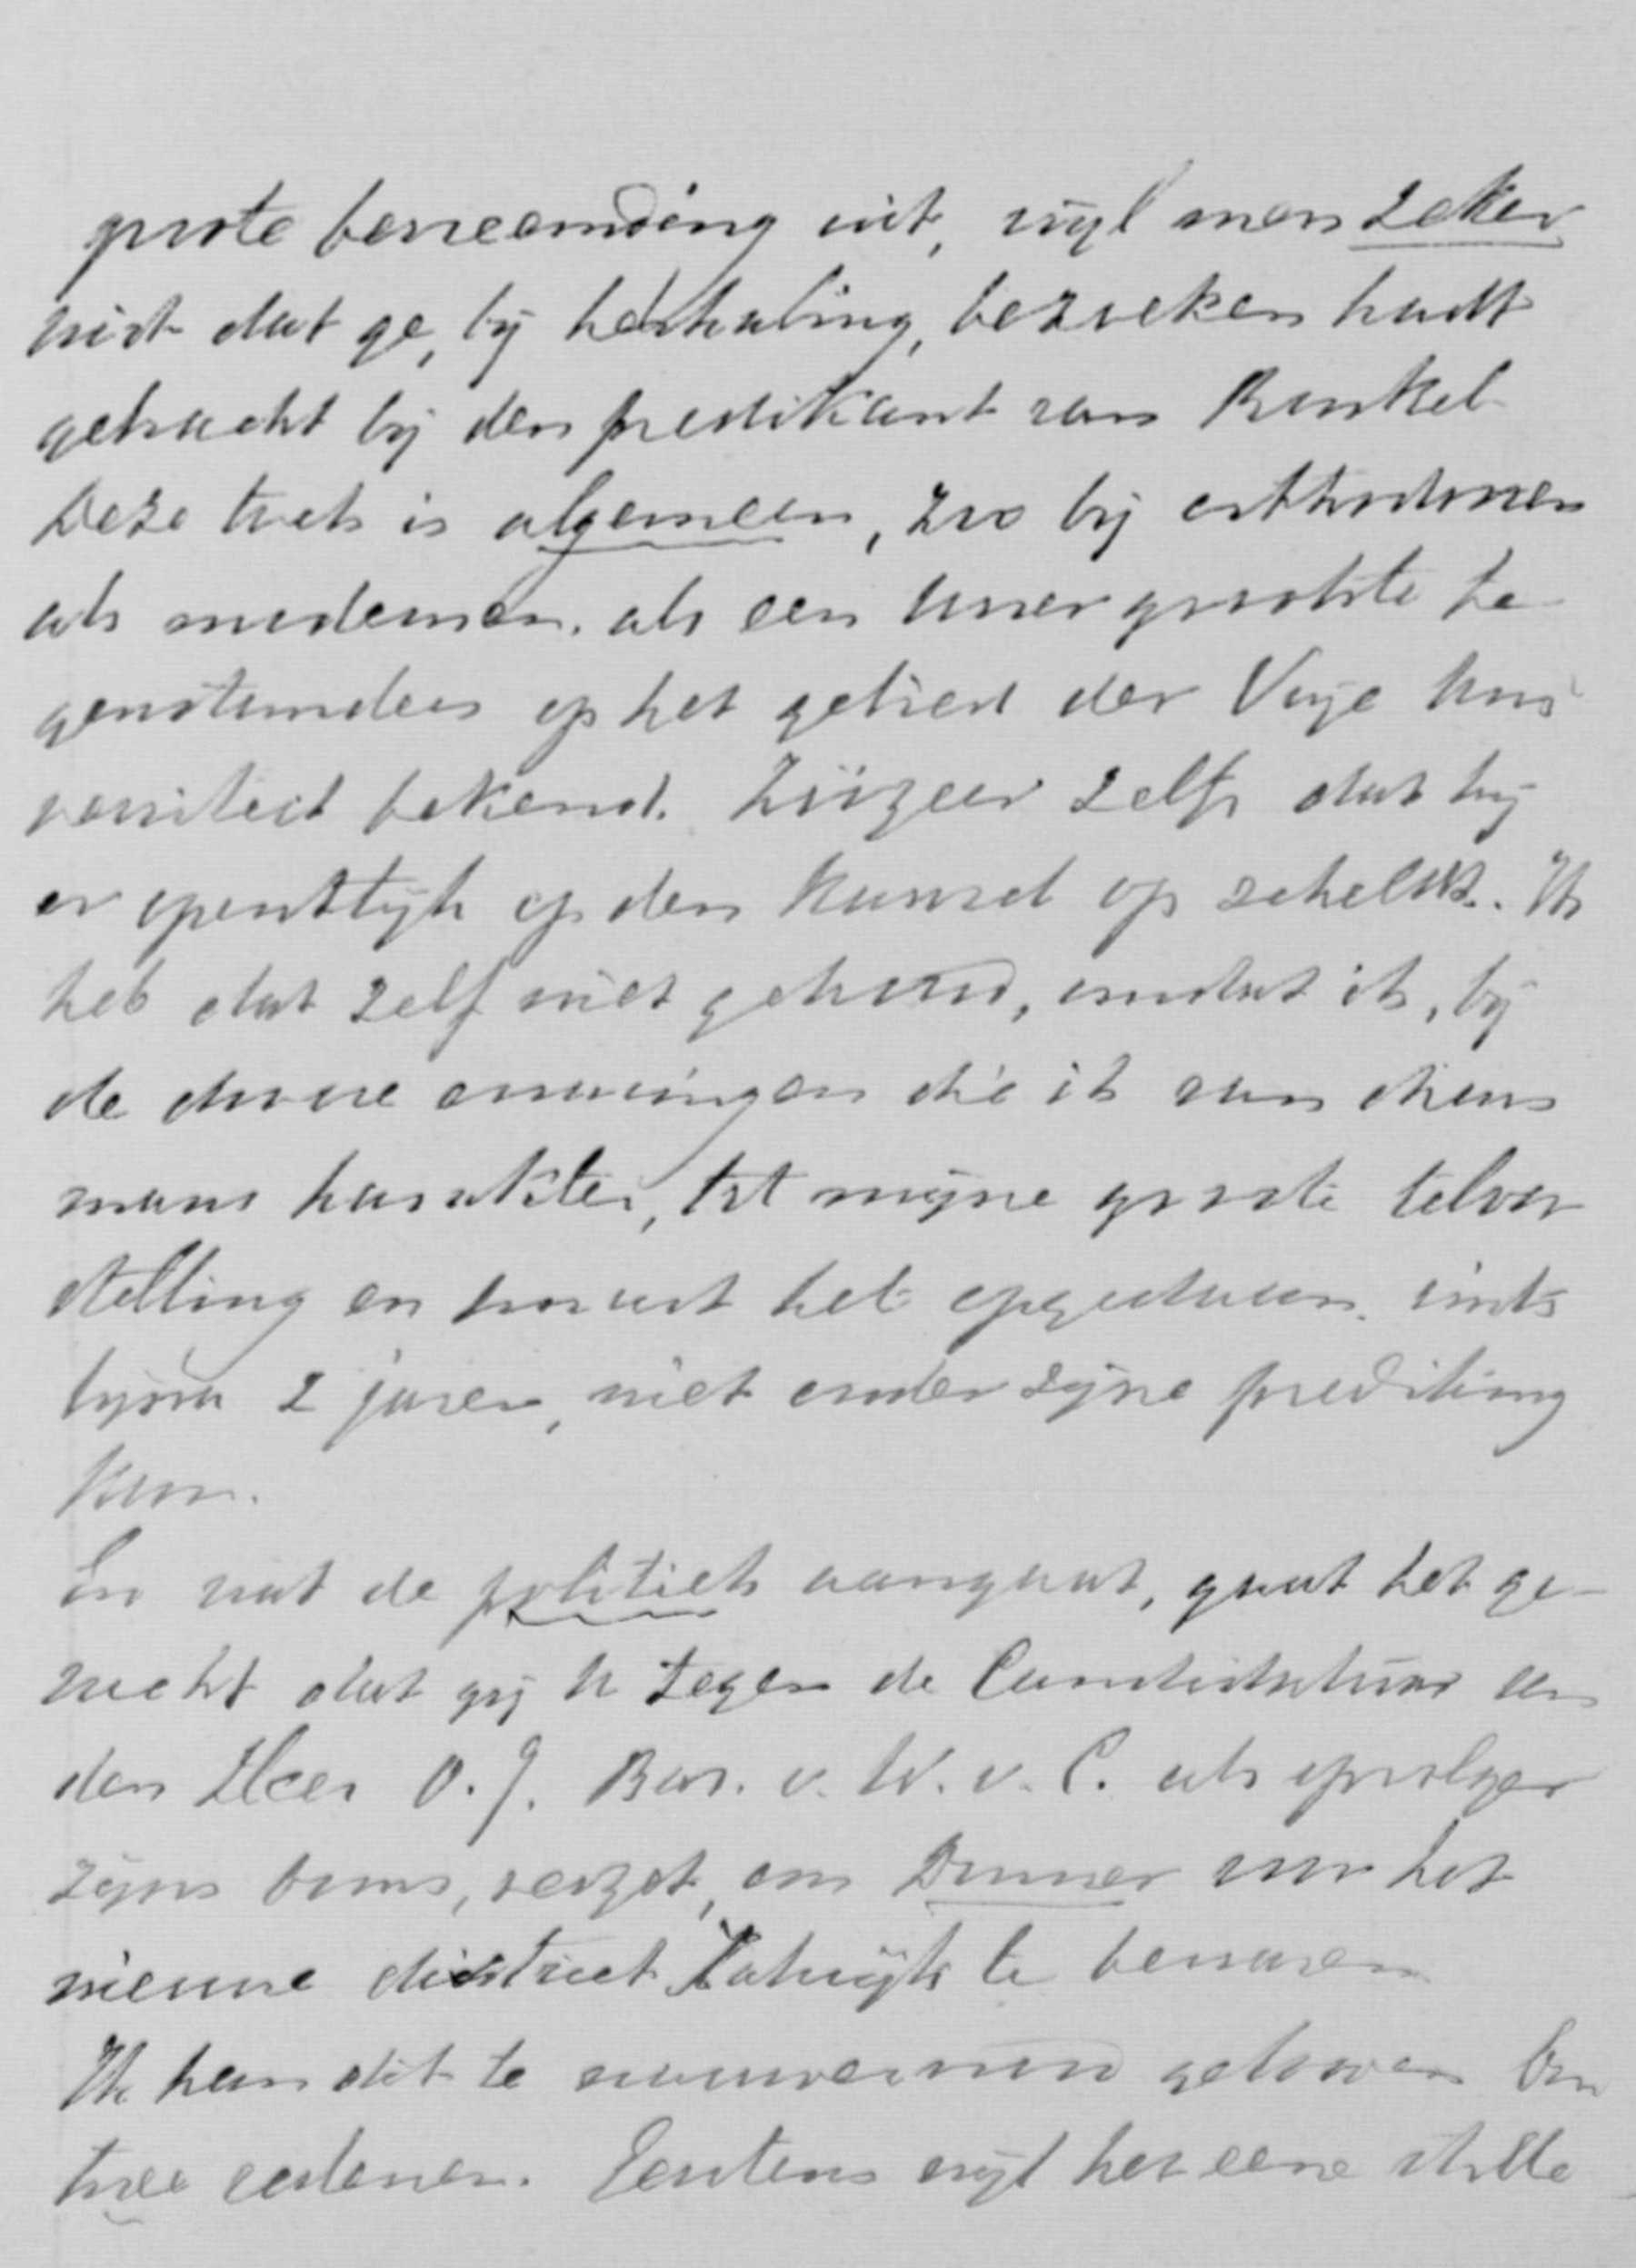 groote bevreemding uit, wijl men zeker
wist dat ge, bij herhaling, bezoeken hadt
gebracht bij den predikant van Runkel
Deze toch is algemeen, zoo bij orthodoxen
als modernen, als een Uwer grootste te
genstanders op het gebied der Vrije Uni
versiteit bekend. Zóózeer zelfs dat hij
er openlijk op den kansel op scheldt. Ik
heb dat zelf niet gehoord, omdat ik, bij
de droeve ervaringen die ik van diens
mans karakter, tot mijne groote teleur
stelling en smart heb opgedaan, sinds
bijna 2 jaren, niet onder zijne prediking
kom.
En wat de politiek aangaat, gaat het ge-
rucht dat gij U tegen de Candidatuur van
den Heer O. J. Bar. v. W. v. C. als opvolger
zijns ooms, verzet, om Donner voor het
nieuwe district Katwijk te bewaren
Ik kan dit te nauwernood gelooven Om
twee redenen. Eerstens wijl het eene stille